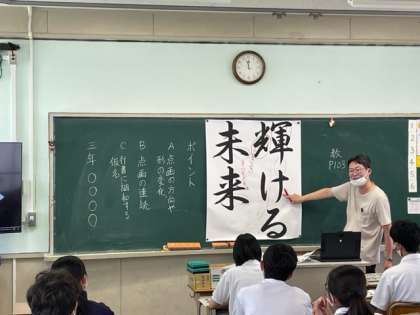 教
P103
輝ける
未来
ポイント
A 点画の方向や
形の変化
B 点画の連続
C 行書に調和する
仮名
三年 〇〇〇〇